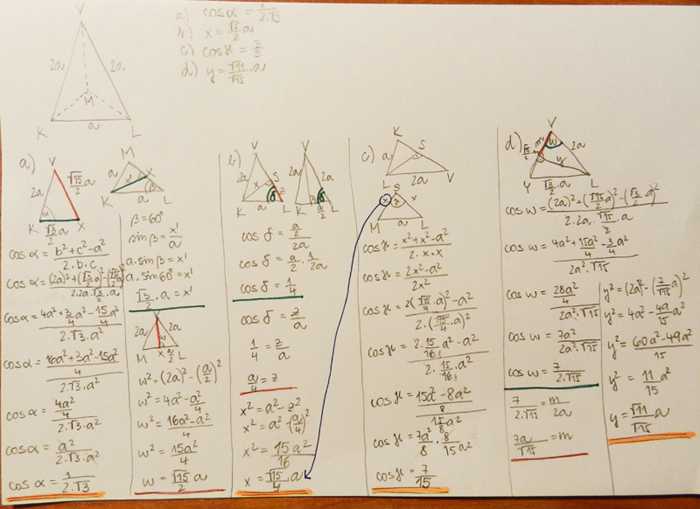 V
2a 2a
M
K a L
a) cos α = 1/(2·√3)
d) y = √11/√15 · a
a)
V
2a √15/2 a
K √3/2 a X
cos α = (b² + c² - a²)/(2·b·c)
cos α = ((2a)² + (√3/2 a)² - (√15/2 a)²)/(2·2a·√3/2·a)
cos α = (4a² + 3/4 a² - 15/4 a²)/(2·√3·a²)
cos α = ((16a² + 3a² - 15a²)/4)/(2·√3·a²)
cos α = (4a²/4)/(2·√3·a²)
cos α = a²/(2·√3·a²)
cos α = 1/(2·√3)
M
a X
K a L
β = 60°
sin β = x'/a
a·sin β = x'
a·sin 60° = x'
√3/2 · a = x'
V
2a 2a
w
M X a/2 L
w² = (2a)² - (a/2)²
w² = 4a² - a²/4
w² = (16a² - a²)/4
w² = 15a²/4
w = √15/2 a
b)
V V
2a x S z
K a L K a/2 L
cos δ = (a/2)/2a
cos δ = a/2 · 1/2a
cos δ = 1/4
cos δ = z/a
1/4 = z/a
a/4 = z
x² = a² - z²
x² = a² - (a/4)²
x² = 15a²/16
x = √15/4 · a
c)
K
a S
L 2a V
S
x x
M a L
cos ϰ = (x² + x² - a²)/(2·x·x)
cos ϰ = (2x² - a²)/2x²
cos ϰ = (2(√15/4 a)² - a²)/(2·(√15/4 a)²)
cos ϰ = (2·15/16 a² - a²)/(2·15/16 a²)
cos ϰ = ((15a² - 8a²)/8)/(15/8 a²)
cos ϰ = 7a²/8 · 8/15a²
cos ϰ = 7/15
d)
V
m w 2a
√15/2 a y
Y √3/2 a L
cos w = ((2a)² + (√15/2 a)² - (√3/2 a)²)/(2·2a·√15/2·a)
cos w = (4a² + 15a²/4 - 3/4 a²)/(2a²·√15)
cos w = (28a²/4)/(2a²·√15)
cos w = 7a²/(2a²·√15)
cos w = 7/(2·√15)
7/(2·√15) = m/2a
7a/√15 = m
y² = (2a)² - (7/√15 a)²
y² = 4a² - 49/15 a²
y² = (60a² - 49a²)/15
y² = 11/15 a²
y = √11/√15 a